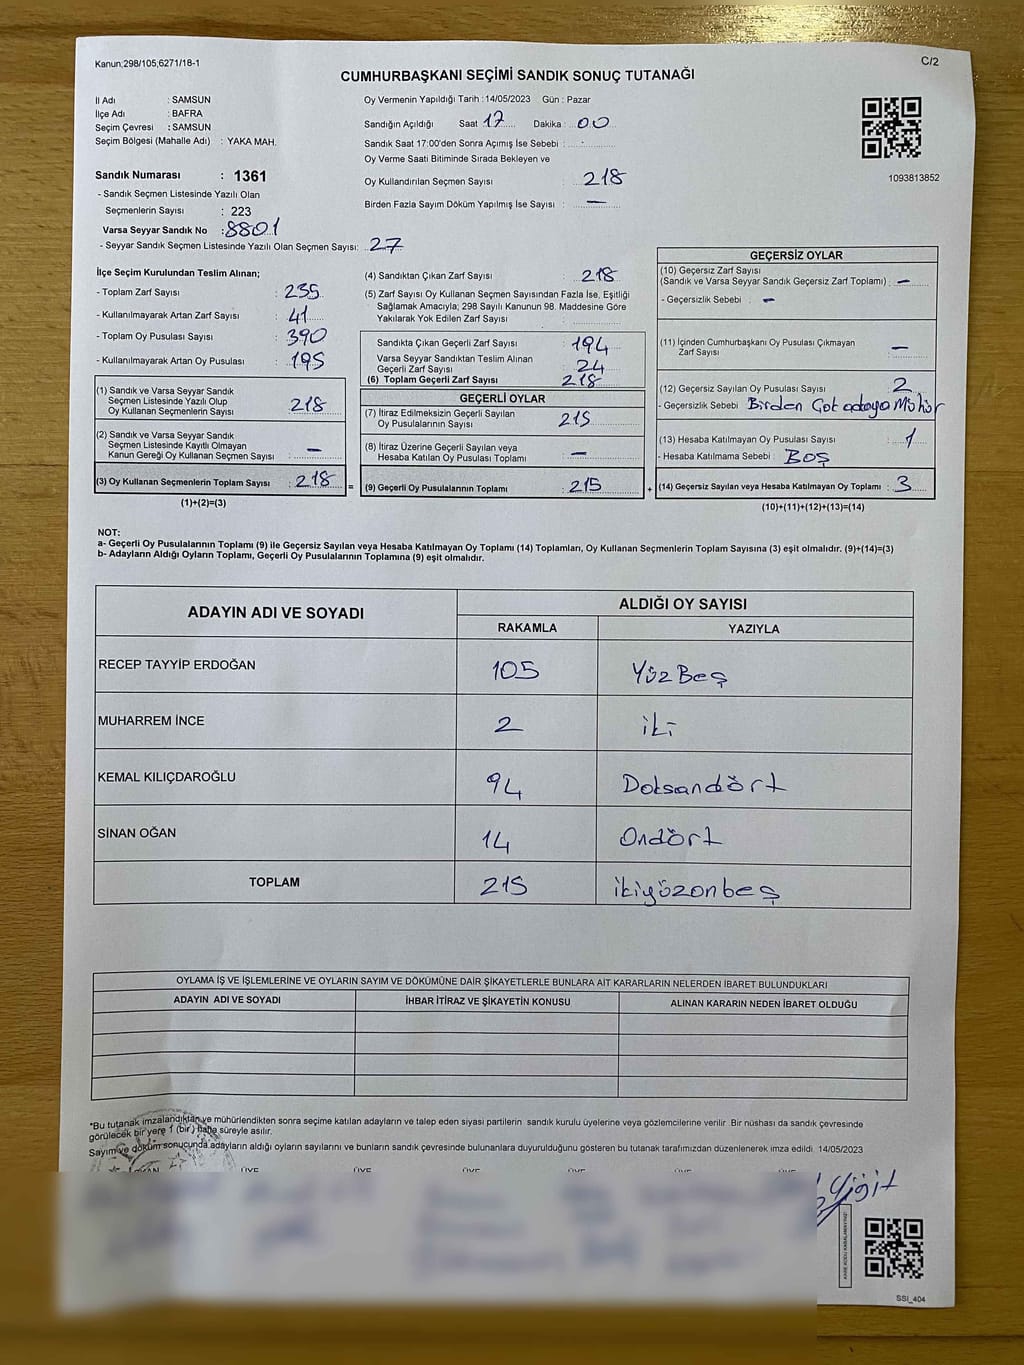 Kanun;298/105;6271/18-1
C/2
CUMHURBAŞKANI SEÇİMİ SANDIK SONUÇ TUTANAĞI
İl Adı : SAMSUN
İlçe Adı : BAFRA
Seçim Çevresi : SAMSUN
Seçim Bölgesi (Mahalle Adı) : YAKA MAH.
Oy Vermenin Yapıldığı Tarih :14/05/2023 Gün : Pazar
Sandığın Açıldığı Saat 17 Dakika : 00
Sandık Saat 17:00'den Sonra Açımış İse Sebebi : -
Oy Verme Saati Bitiminde Sırada Bekleyen ve
Oy Kullandırılan Seçmen Sayısı : 218
Birden Fazla Sayım Döküm Yapılmış İse Sayısı : —
1093813852
Sandık Numarası : 1361
- Sandık Seçmen Listesinde Yazılı Olan
Seçmenlerin Sayısı : 223
Varsa Seyyar Sandık No : 8801
- Seyyar Sandık Seçmen Listesinde Yazılı Olan Seçmen Sayısı: 27
İlçe Seçim Kurulundan Teslim Alınan;
- Toplam Zarf Sayısı : 235
- Kullanılmayarak Artan Zarf Sayısı : 41
- Toplam Oy Pusulası Sayısı : 390
- Kullanılmayarak Artan Oy Pusulası : 195
(1) Sandık ve Varsa Seyyar Sandık
Seçmen Listesinde Yazılı Olup
Oy Kullanan Seçmenlerin Sayısı : 218
(2) Sandık ve Varsa Seyyar Sandık
Seçmen Listesinde Kayıtlı Olmayan
Kanun Gereği Oy Kullanan Seçmen Sayısı : —
(3) Oy Kullanan Seçmenlerin Toplam Sayısı : 218 =
(1)+(2)=(3)
(4) Sandıktan Çıkan Zarf Sayısı : 218
(5) Zarf Sayısı Oy Kullanan Seçmen Sayısından Fazla İse, Eşitliği
Sağlamak Amacıyla; 298 Sayılı Kanunun 98. Maddesine Göre
Yakılarak Yok Edilen Zarf Sayısı :
Sandıkta Çıkan Geçerli Zarf Sayısı : 194
Varsa Seyyar Sandıktan Teslim Alınan
Geçerli Zarf Sayısı : 24
(6) Toplam Geçerli Zarf Sayısı : 218
GEÇERLİ OYLAR
(7) İtiraz Edilmeksizin Geçerli Sayılan
Oy Pusulalarının Sayısı : 215
(8) İtiraz Üzerine Geçerli Sayılan veya
Hesaba Katılan Oy Pusulası Toplamı : —
(9) Geçerli Oy Pusulalarının Toplamı : 215 +
GEÇERSİZ OYLAR
(10) Geçersiz Zarf Sayısı
(Sandık ve Varsa Seyyar Sandık Geçersiz Zarf Toplamı) : —
- Geçersizlik Sebebi : —
(11) İçinden Cumhurbaşkanı Oy Pusulası Çıkmayan
Zarf Sayısı : —
(12) Geçersiz Sayılan Oy Pusulası Sayısı : 2
- Geçersizlik Sebebi : Birden Çok adaya Mühür
(13) Hesaba Katılmayan Oy Pusulası Sayısı : 1
- Hesaba Katılmama Sebebi : Boş
(14) Geçersiz Sayılan veya Hesaba Katılmayan Oy Toplamı : 3
(10)+(11)+(12)+(13)=(14)
NOT:
a- Geçerli Oy Pusulalarının Toplamı (9) ile Geçersiz Sayılan veya Hesaba Katılmayan Oy Toplamı (14) Toplamları, Oy Kullanan Seçmenlerin Toplam Sayısına (3) eşit olmalıdır. (9)+(14)=(3)
b- Adayların Aldığı Oyların Toplamı, Geçerli Oy Pusulalarının Toplamına (9) eşit olmalıdır.
ADAYIN ADI VE SOYADI
ALDIĞI OY SAYISI
RAKAMLA YAZIYLA
RECEP TAYYİP ERDOĞAN 105 Yüz Beş
MUHARREM İNCE 2 iki
KEMAL KILIÇDAROĞLU 94 Doksandört
SİNAN OĞAN 14 Ondört
TOPLAM 215 ikiyüzonbeş
OYLAMA İŞ VE İŞLEMLERİNE VE OYLARIN SAYIM VE DÖKÜMÜNE DAİR ŞİKAYETLERLE BUNLARA AİT KARARLARIN NELERDEN İBARET BULUNDUKLARI
ADAYIN ADI VE SOYADI İHBAR İTİRAZ VE ŞİKAYETİN KONUSU ALINAN KARARIN NEDEN İBARET OLDUĞU
*Bu tutanak imzalandıktan ve mühürlendikten sonra seçime katılan adayların ve talep eden siyasi partilerin sandık kurulu üyelerine veya gözlemcilerine verilir. Bir nüshası da sandık çevresinde
görülecek bir yere 1 (bir) hafta süreyle asılır.
Sayım ve döküm sonucunda adayların aldığı oyların sayılarını ve bunların sandık çevresinde bulunanlara duyurulduğunu gösteren bu tutanak tarafımızdan düzenlenerek imza edildi. 14/05/2023
ÜYE ÜYE ÜYE ÜYE ÜYE
Yiğit
SSI_404